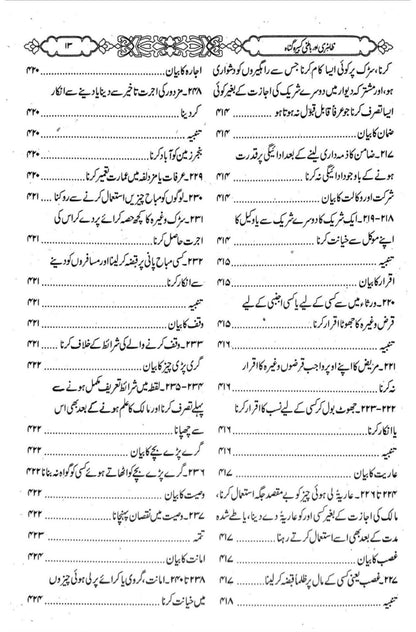 ظاہری اور باطنی کبیرہ گناہ
۱۳
کرنا، سڑک پر کوئی ایسا کام کرنا جس سے راہگیروں کو دشواری
ہو، اور مشترکہ دیوار میں دوسرے شریک کی اجازت کے بغیر کوئی
ایسا تصرف کرنا جو عرفاً قابل قبول نہ ہوتا ہو ۴۱۴
ضمان کا بیان ۴۱۴
۲۱۷۔ ضامن کا ذمہ داری لینے کے بعد ادائیگی پر قدرت
ہونے کے باوجود ادائیگی نہ کرنا ۴۱۴
شرکت اور وکالت کا بیان ۴۱۴
۲۱۸-۲۱۹۔ ایک شریک کا دوسرے شریک سے یا وکیل کا
اپنے موکل سے خیانت کرنا ۴۱۵
تنبیہ ۴۱۵
اقرار کا بیان ۴۱۵
۲۲۰۔ ورثاء میں سے کسی کے لیے یا کسی اجنبی کے لیے
قرض وغیرہ کا جھوٹا اقرار کرنا ۴۱۵
تنبیہ ۴۱۶
۲۲۱۔ مریض کا اپنے اوپر واجب قرضوں وغیرہ کا اقرار
نہ کرنا ۴۱۶
۲۲۲-۲۲۳۔ جھوٹ بول کر کسی کے لیے نسب کا اقرار کرنا
یا انکار کرنا ۴۱۶
تنبیہ ۴۱۶
عاریت کا بیان ۴۱۷
۲۲۴ تا ۲۲۶۔ عاریۃً لی ہوئی چیز کو بے مقصد جگہ استعمال کرنا،
مالک کی اجازت کے بغیر کسی اور کو عاریۃً دے دینا، یا طے شدہ
مدت کے بعد بھی اسے استعمال کرتے رہنا ۴۱۷
غصب کا بیان ۴۱۷
۲۲۷۔ غصب یعنی کسی کے مال پر ظلماً قبضہ کر لینا ۴۱۷
تنبیہ ۴۱۸
اجارہ کا بیان ۴۲۰
۲۲۸۔ مزدور کی اجرت تاخیر سے دینا یا دینے سے انکار
کر دینا ۴۲۰
تنبیہ ۴۲۰
بنجر زمین کو آباد کرنا ۴۲۰
۲۲۹۔ عرفات یا مزدلفہ میں عمارت تعمیر کرنا ۴۲۰
۲۳۰۔ لوگوں کو مباح چیزیں استعمال کرنے سے روکنا ۴۲۱
۲۳۱۔ سڑک وغیرہ کا کچھ حصہ کرائے پر دے کر اس کی
اجرت حاصل کرنا ۴۲۱
۲۳۲۔ کسی مباح پانی پر قبضہ کر لینا اور مسافروں کو دینے
سے انکار کرنا ۴۲۱
تنبیہ ۴۲۱
وقف کا بیان ۴۲۱
۲۳۳۔ وقف کرنے والے کی شرائط کے خلاف کرنا ۴۲۲
گری پڑی چیز کا بیان ۴۲۲
۲۳۴-۲۳۵۔ لقطہ میں شرائط تعریف مکمل ہونے سے
پہلے تصرف کرنا اور مالک کا علم ہونے کے بعد بھی اس
سے چھپانا ۴۲۲
گرے پڑے بچے کا بیان ۴۲۲
۲۳۶۔ گرے پڑے بچے کو اٹھاتے ہوئے کسی کو گواہ نہ بنانا ۴۲۲
وصیت کا بیان ۴۲۲
۲۳۷۔ وصیت میں نقصان پہنچانا ۴۲۲
تتمہ ۴۲۳
امانت کا بیان ۴۲۴
۲۳۸ تا ۲۴۰۔ امانت، گروی یا کرائے پر لی ہوئی چیزوں
میں خیانت کرنا ۴۲۴